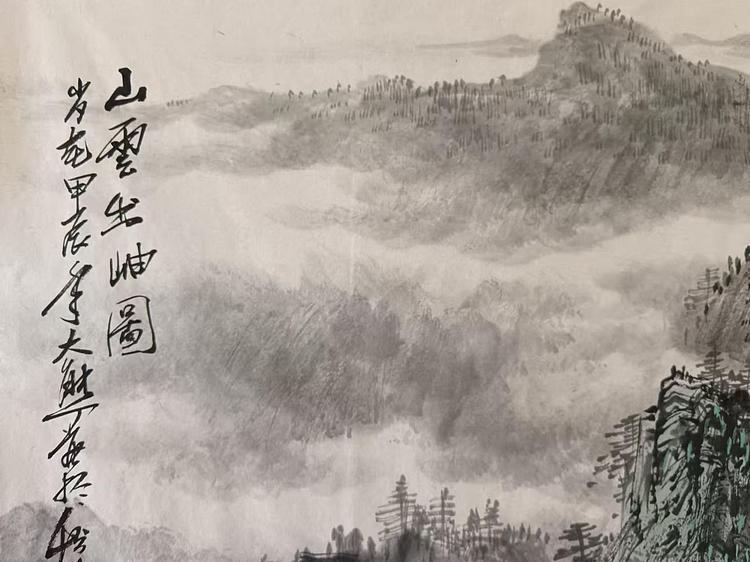 山雲出岫圖
岁在甲辰年大熊於